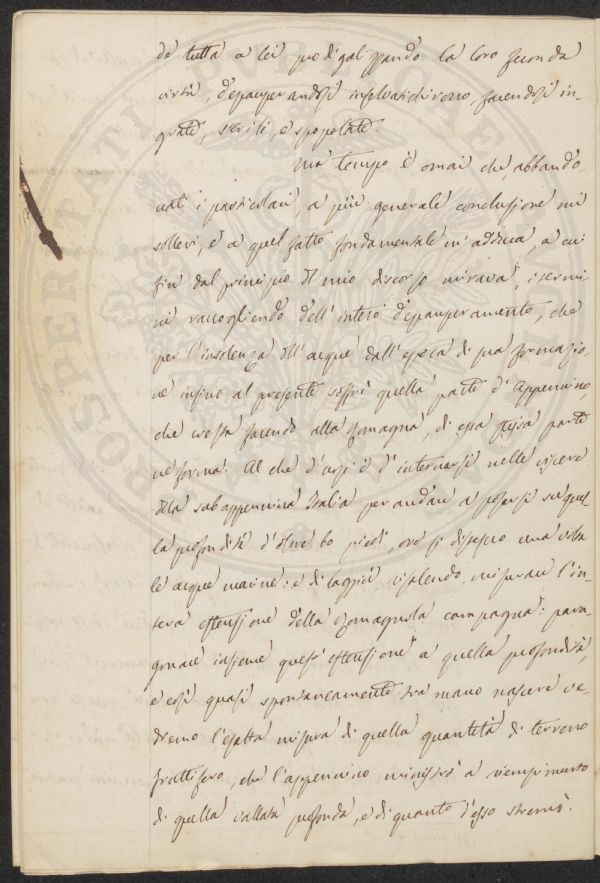 de tutta a lei prodigalizzando la loro feconda
virtù, depauperandosi insalvatichirono, facendosi in-
grate, sterili, e spopolate.
Ma tempo è omai che abbando-
nati i particolari, a più generale conclusione mi
sollevi, e a quel fatto fondamentale m'adduca, a cui
fin dal principio del mio discorso mirava, i termi
ni raccogliendo dell'intero depauperamento, che
per l'insolenza dell'acque dall'epoca di sua formazio-
ne infino al presente soffrì quella parte d'Appennino,
che cresta facendo alla Romagna, di essa stessa parte
ne forma. Al che d'uopo è d'internarsi nelle viscere
della subappennina Italia per andare a posarsi su quel-
la profondità d'oltre 60 piedi, ove si distesero una volta
le acque marine: e di laggiù, risalendo, misurare l'in-
tera estensione della Romagnola campagna: para-
gonare insieme quest'estensione a quella profondità,
e così quasi spontaneamente tra mano nascere ve-
dremo l'esatta misura di quella quantità di terreno
fruttifero, che l'appennino ministrò a riempimento
di quella vallata profonda, e di quanto d'esso stremò.
PROSPERITATI PUBLICAE